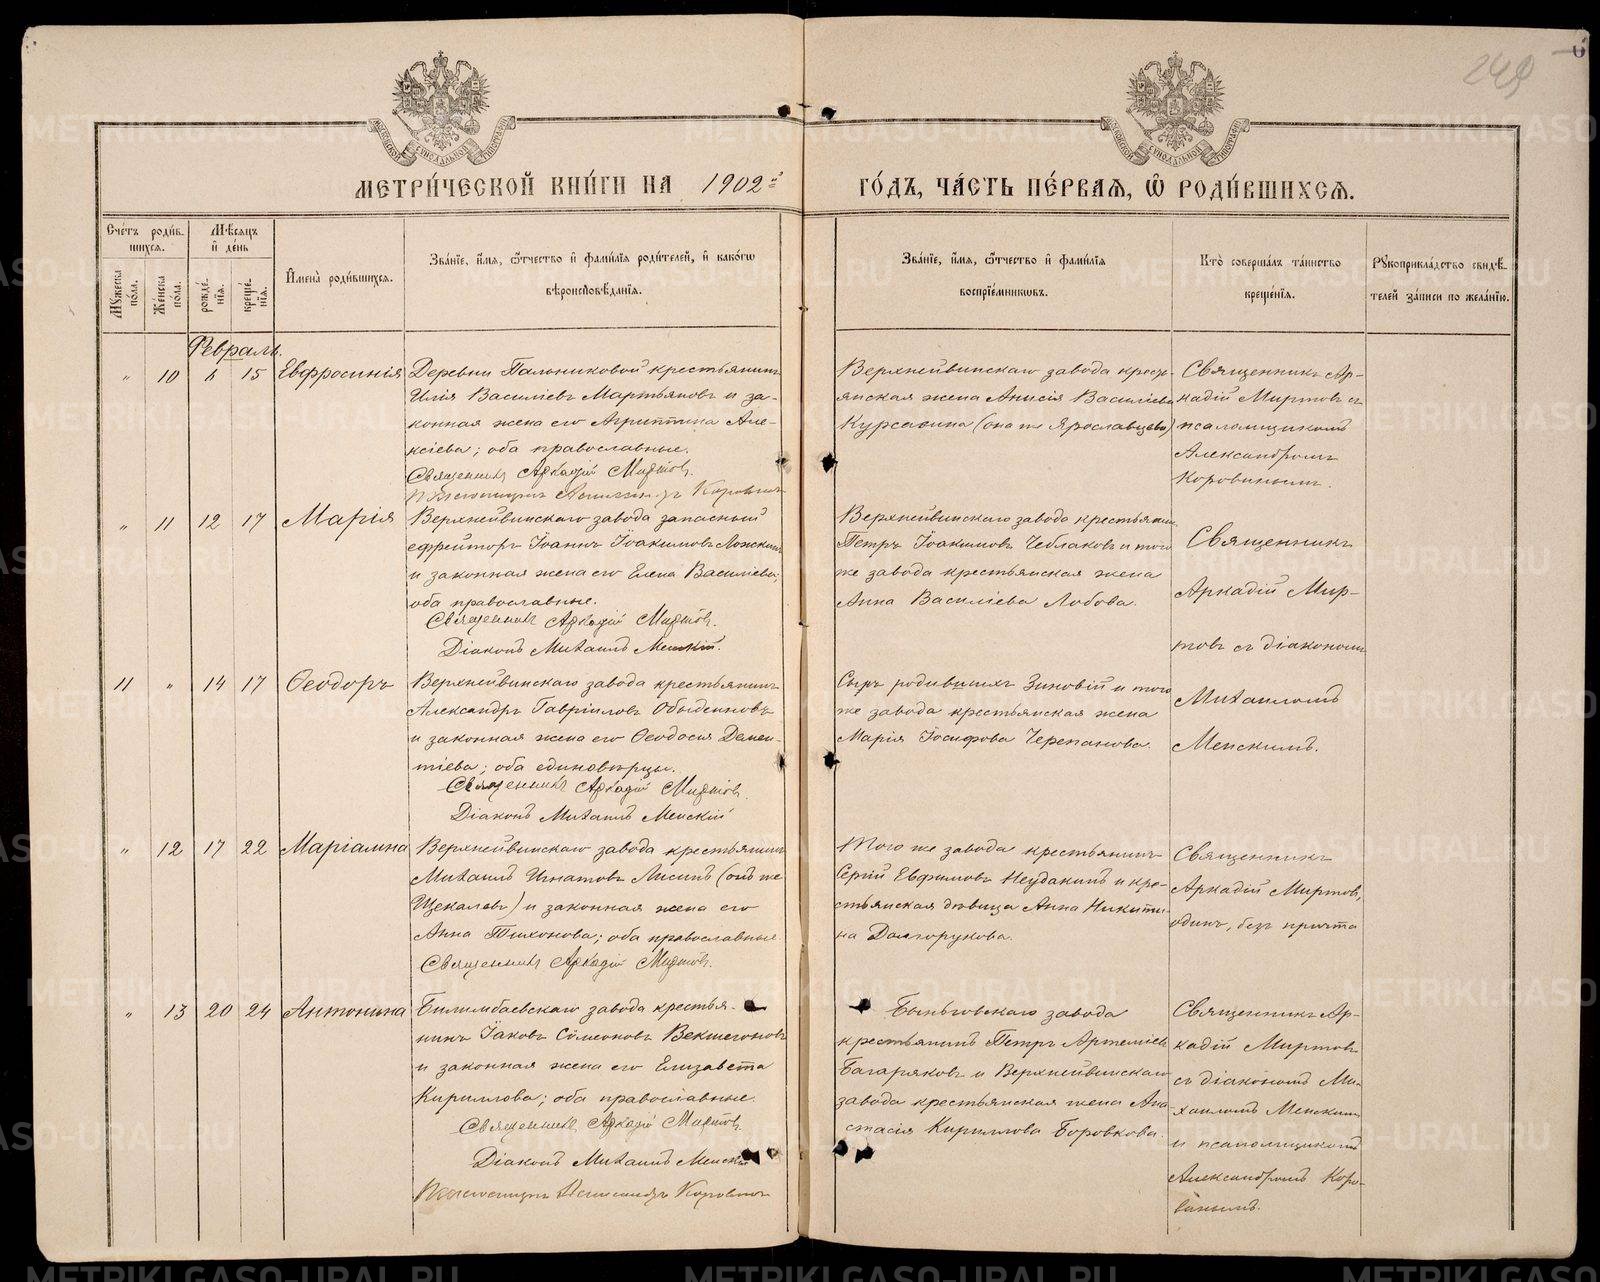 249
МЕТРИ́ЧЕСКОЙ КНИ́ГИ НА 1902й
ГО́ДЪ, ЧА́СТЬ ПЕ́РВАѦ, Ѡ҆ РОДИ́ВШИХСѦ.
Сче́тъ роди́в-
шихсѧ.
Мꙋ́жеска по́ла.
Же́нска по́ла.
Мѣ́сѧцъ
и҆ де́нь
рожде́-
нїѧ.
креще́-
нїѧ.
И҆мена̀ роди́вшихсѧ.
Зва́нїе, и҆́мѧ, ѻ҆́тчество и҆ фами́лїѧ роди́телей, и҆ како́гѡ
вѣроисповѣ́данїѧ.
Зва́нїе, и҆́мѧ, ѻ҆́тчество и҆ фами́лїѧ
воспрїе́мникѡвъ.
Кто̀ соверша́лъ та́инство
креще́нїѧ.
Рꙋкоприкла́дство свидѣ́-
телей за́писи по жела́нїю.
Февраль.
" 10 15 Евфросинія
Деревни Пальниковой крестьянинъ
Илія Василіевъ Мартьяновъ и за-
конная жена его Агриппина Але-
ксіева; оба православные.
Священникъ Аркадій Миртовъ.
Псаломщикъ Александръ Коровинъ
Верхнейвинскаго завода кресть-
янская жена Анисія Василіева
Курсавина (она же Ярославцева)
Священникъ Ар-
кадій Миртовъ съ
псаломщикомъ
Александромъ
Коровинымъ.
" 11 12 17 Марія
Верхнейвинскаго завода запасный
ефрейторъ Іоаннъ Іоакимовъ
и законная жена его Елена Василіева;
оба православные.
Священникъ Аркадій Миртовъ.
Діаконъ Михаилъ Менскій.
Верхнейвинскаго завода крестьянинъ
Петръ Іоакимовъ Чеблаковъ и того
же завода крестьянская жена
Анна Василіева Лобова.
Священникъ
Аркадій Мир-
товъ съ діакономъ
Михаиломъ
Менскимъ.
11 " 14 17 Ѳеодоръ
Верхнейвинскаго завода крестьянинъ
Александръ Гавріиловъ Обыденновъ
и законная жена его Ѳеодосія Демен-
тіева; оба единовѣрцы.
Священникъ Аркадій Миртовъ.
Діаконъ Михаилъ Менскій
Сынъ родившихъ Зиновій и того
же завода крестьянская жена
Марія Іосифова Черепанова.
" 12 17 22 Маріамна
Верхнейвинскаго завода крестьянинъ
Михаилъ Игнатовъ Лисинъ (онъ же
Щекалевъ) и законная жена его
Анна Тихонова; оба православные.
Священникъ Аркадій Миртовъ.
Того же завода крестьянинъ
Сергій Евфимовъ Неудакинъ и кре-
стьянская дѣвица Анна Никити-
на Долгорукова.
Священникъ
Аркадій Миртовъ,
одинъ, безъ причта
" 13 20 24 Антонина
Билимбаевскаго завода крестья-
нинъ Іаковъ Симеоновъ Векшегоновъ
и законная жена его Елизавета
Кириллова; оба православные.
Священникъ Аркадій Миртовъ.
Діаконъ Михаилъ Менскій
Псаломщикъ Александръ Коровинъ
Быньговскаго завода
крестьянинъ Петръ Артеміевъ
Багаряковъ и Верхнейвинскаго
завода крестьянская жена Ана-
стасія Кириллова Боровкова.
Священникъ Ар-
кадій Миртовъ
съ діакономъ Ми-
хаиломъ Менскимъ
и псаломщикомъ
Александромъ Коро-
винымъ.
METRIKI.GASO-URAL.RU